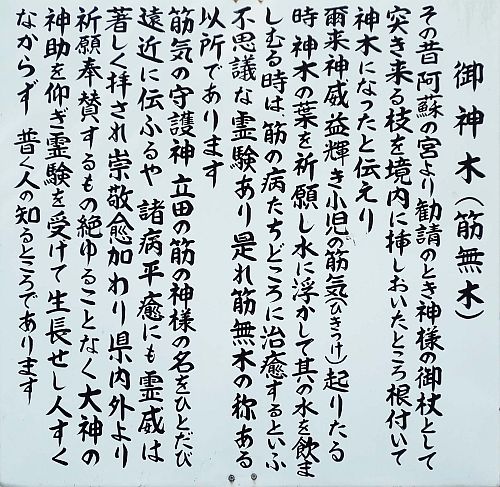 御神木(筋無木)
その昔阿蘇の宮より勧請のとき神様の御杖として
突き来る枝を境内に挿しおいたところ根付いて
神木になったと伝えり
爾来神威益輝き小児の筋気(ひきつけ)起りたる
時神木の葉を祈願し水に浮かして其の水を飲ま
しむる時は、筋の病たちどころに治癒するといふ
不思議な霊験あり是れ筋無木の称ある
以所であります
筋気の守護神立田の筋の神様の名をひとたび
遠近に伝ふるや諸病平癒にも霊威は
著しく拝され崇敬愈加わり県内外より
祈願奉賛するもの絶ゆることなく大神の
神助を仰ぎ霊験を受けて生長せし人すく
なからず普く人の知るところであります